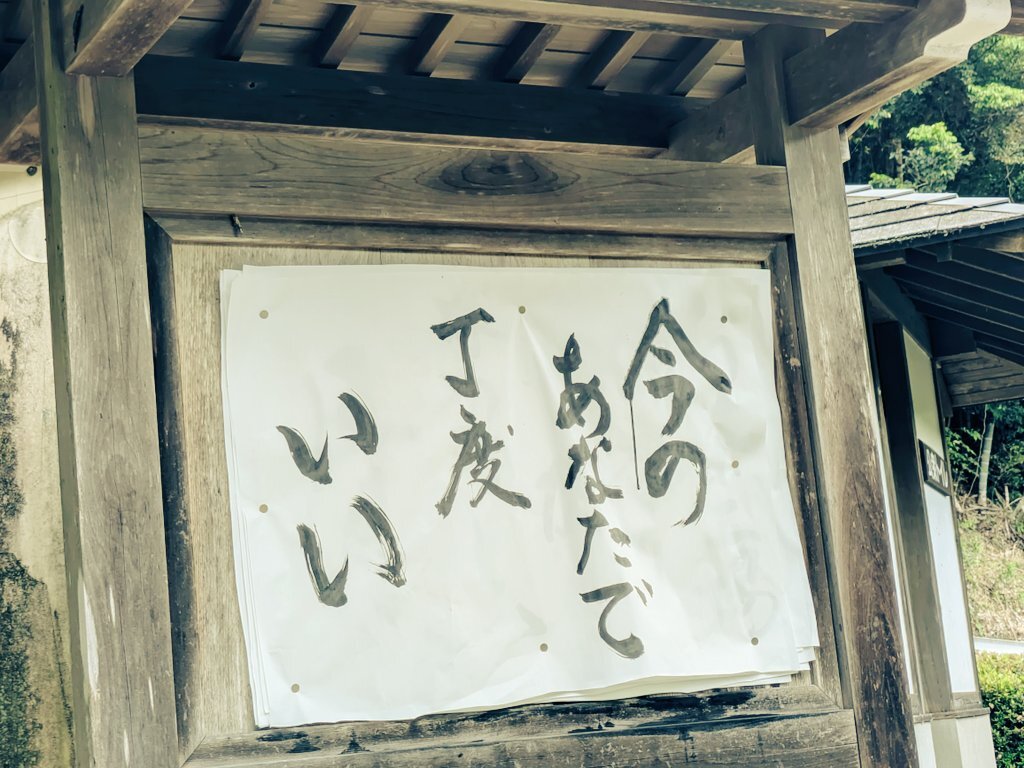 今の
あなたで
丁度
いい